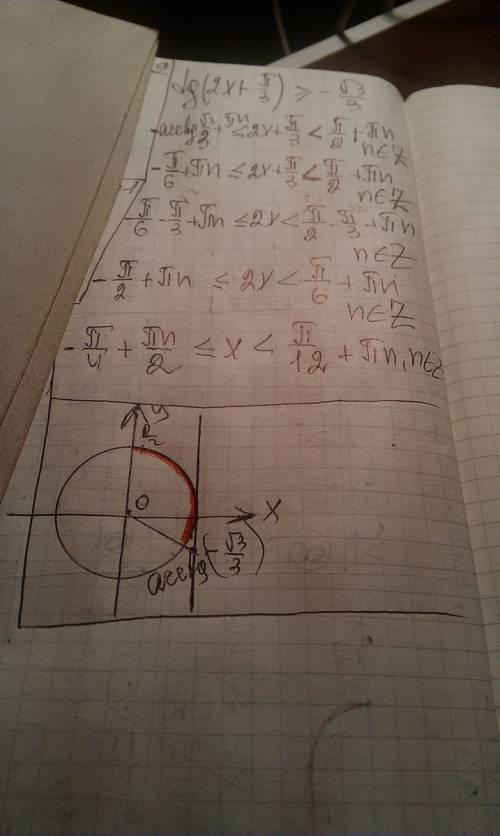 tg(2x + π/3) ≥ -√3/3
-arctg √3/3 + πn ≤ 2x + π/3 < π/2 + πn
n∈Z
-π/6 + πn ≤ 2x + π/3 < π/2 + πn
n∈Z
-π/6 - π/3 + πn ≤ 2x < π/2 - π/3 + πn
n∈Z
-π/2 + πn ≤ 2x < π/6 + πn
n∈Z
-π/4 + πn/2 ≤ x < π/12 + πn, n∈Z
y
π/2
0
x
arctg(-√3/3)